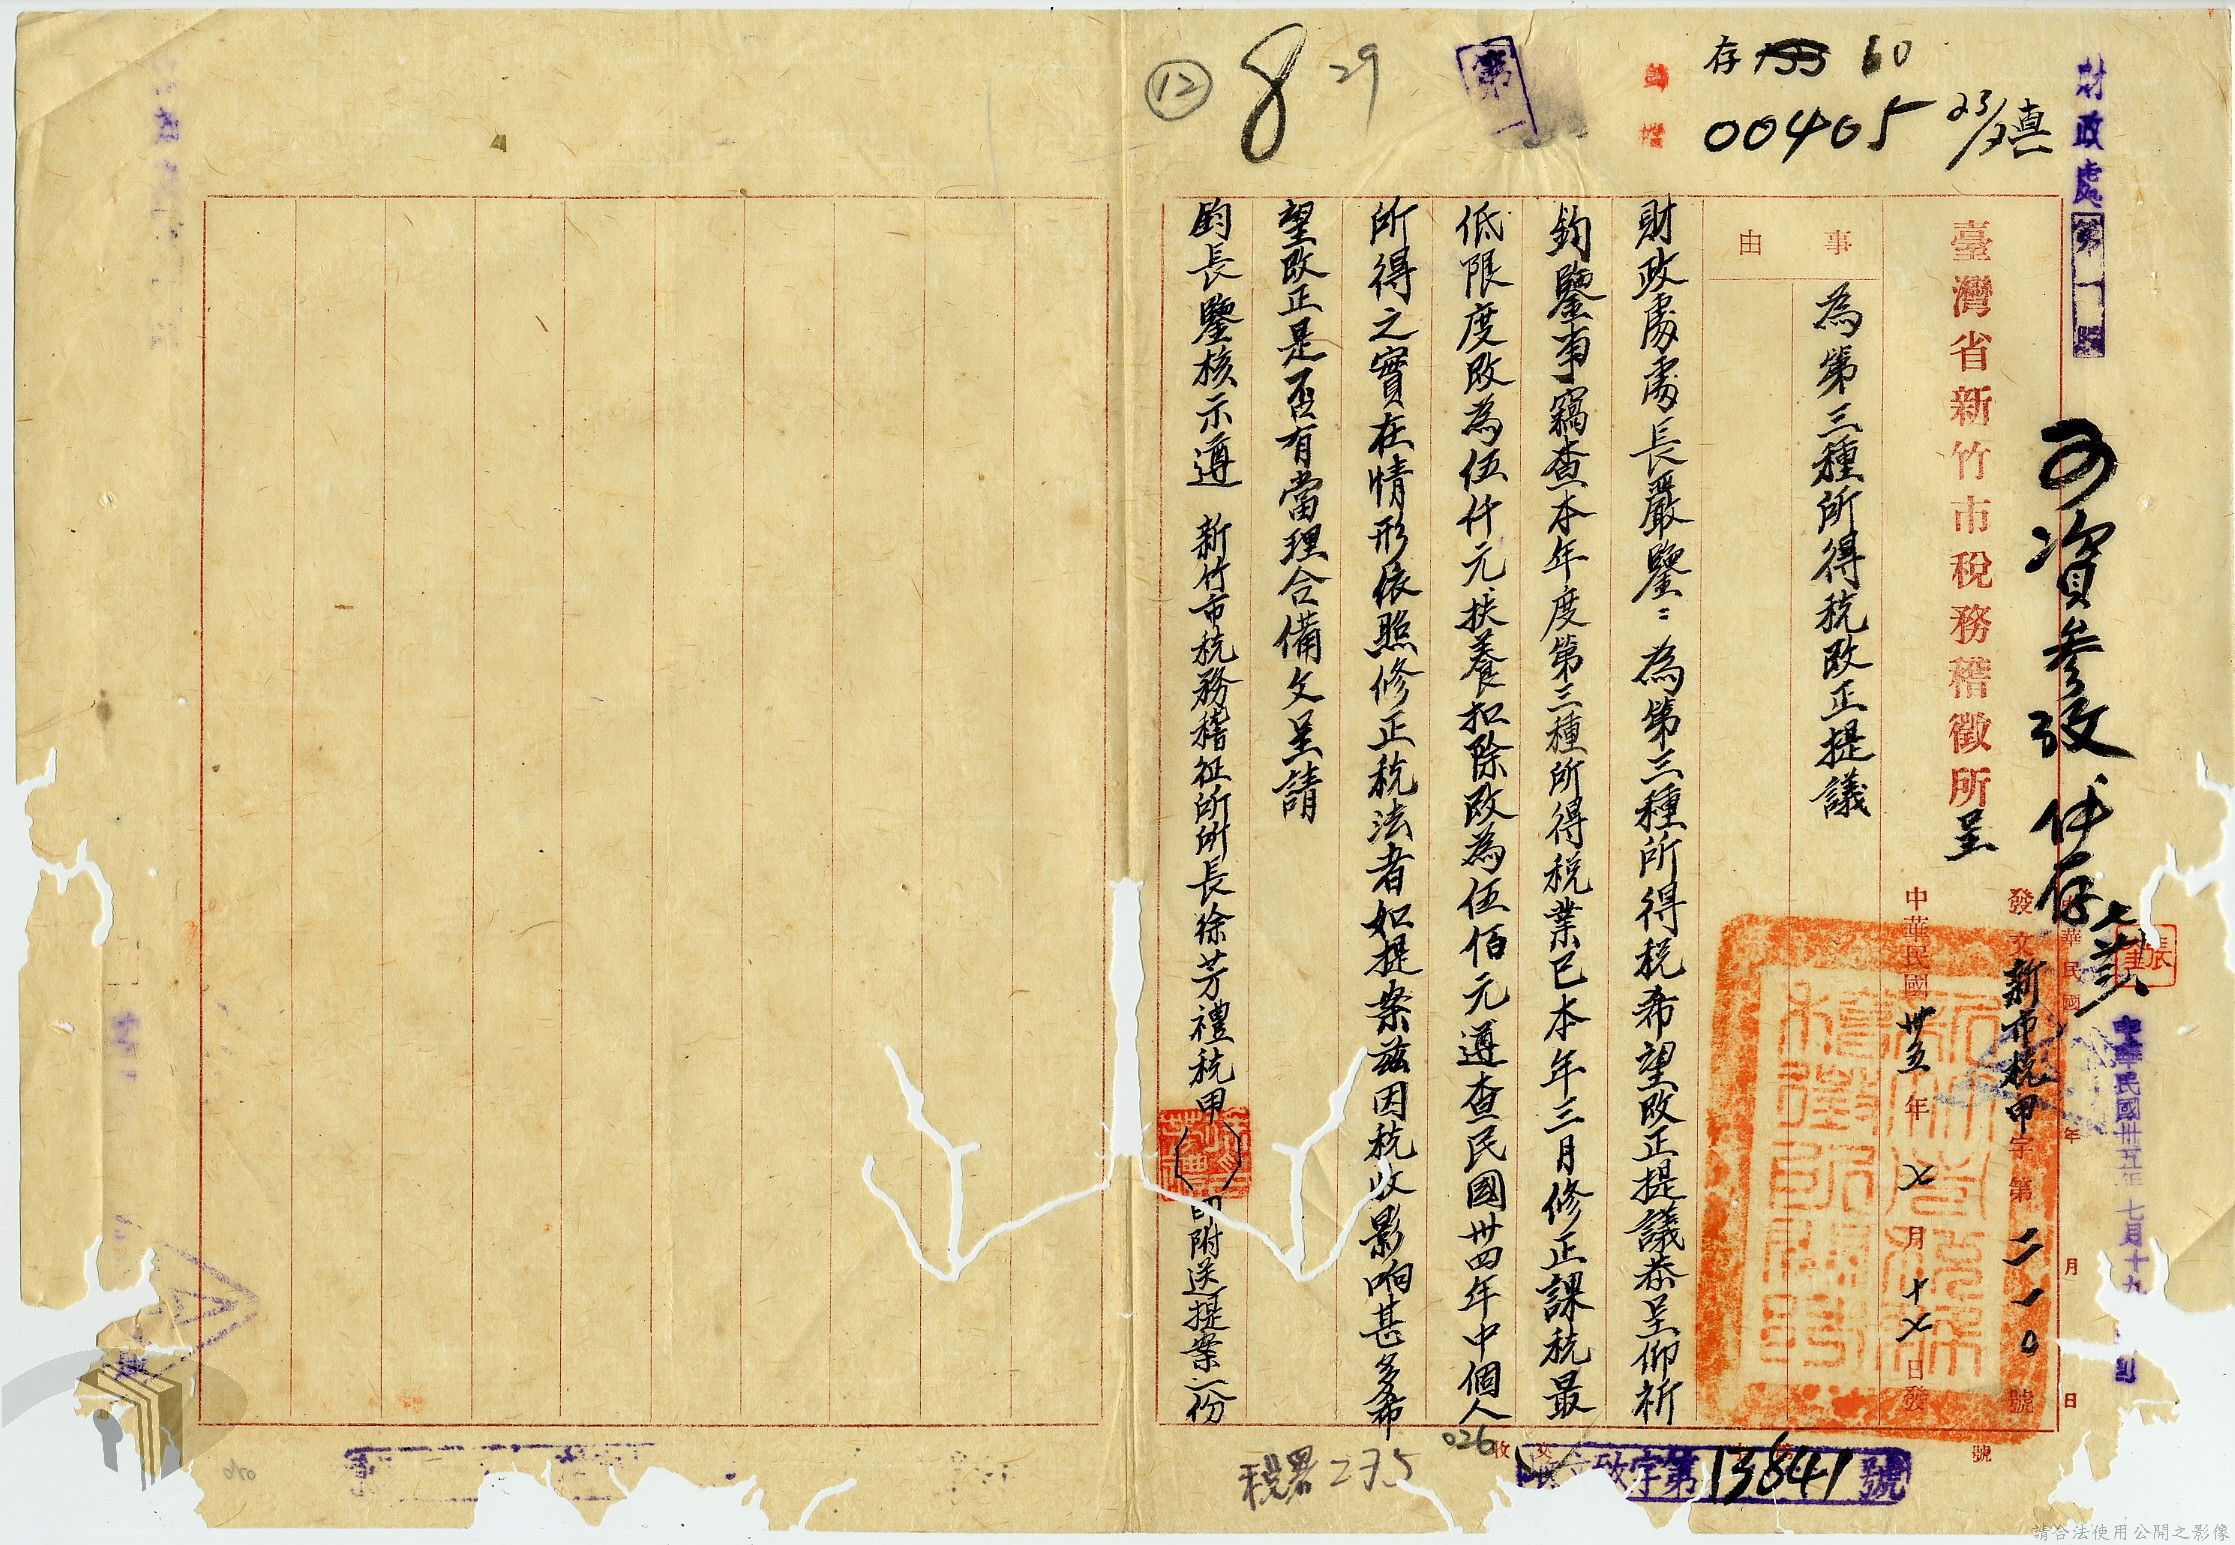 財政處
第一
可資參攷仟存
臺灣省新竹市稅務稽徵所呈
發文新市稅甲字第二一〇號
中華民國卅五年七月十七日發
中華民國卅五年七月十九
年月日
事由
為第三種所得稅改正提議
財政處處長嚴鑒：為第三種所得稅希望改正提議恭呈仰祈
鈞鑒事竊查本年度第三種所得稅業已本年三月修正課稅最
低限度改為伍仟元扶養扣除改為伍佰元遵查民國卅四年中個人
所得之實在情形依照修正稅法者如提案茲因稅收影响甚多希
望改正是否有當理合備文呈請
鈞長鑒核示遵 新竹市稅務稽征所所長徐芳禮稅甲()印附送提案一份
存 60
00405
23/7
第一
29
8
12
026
收文 字第13841號
號
稅署235
請合法使用公開之影像